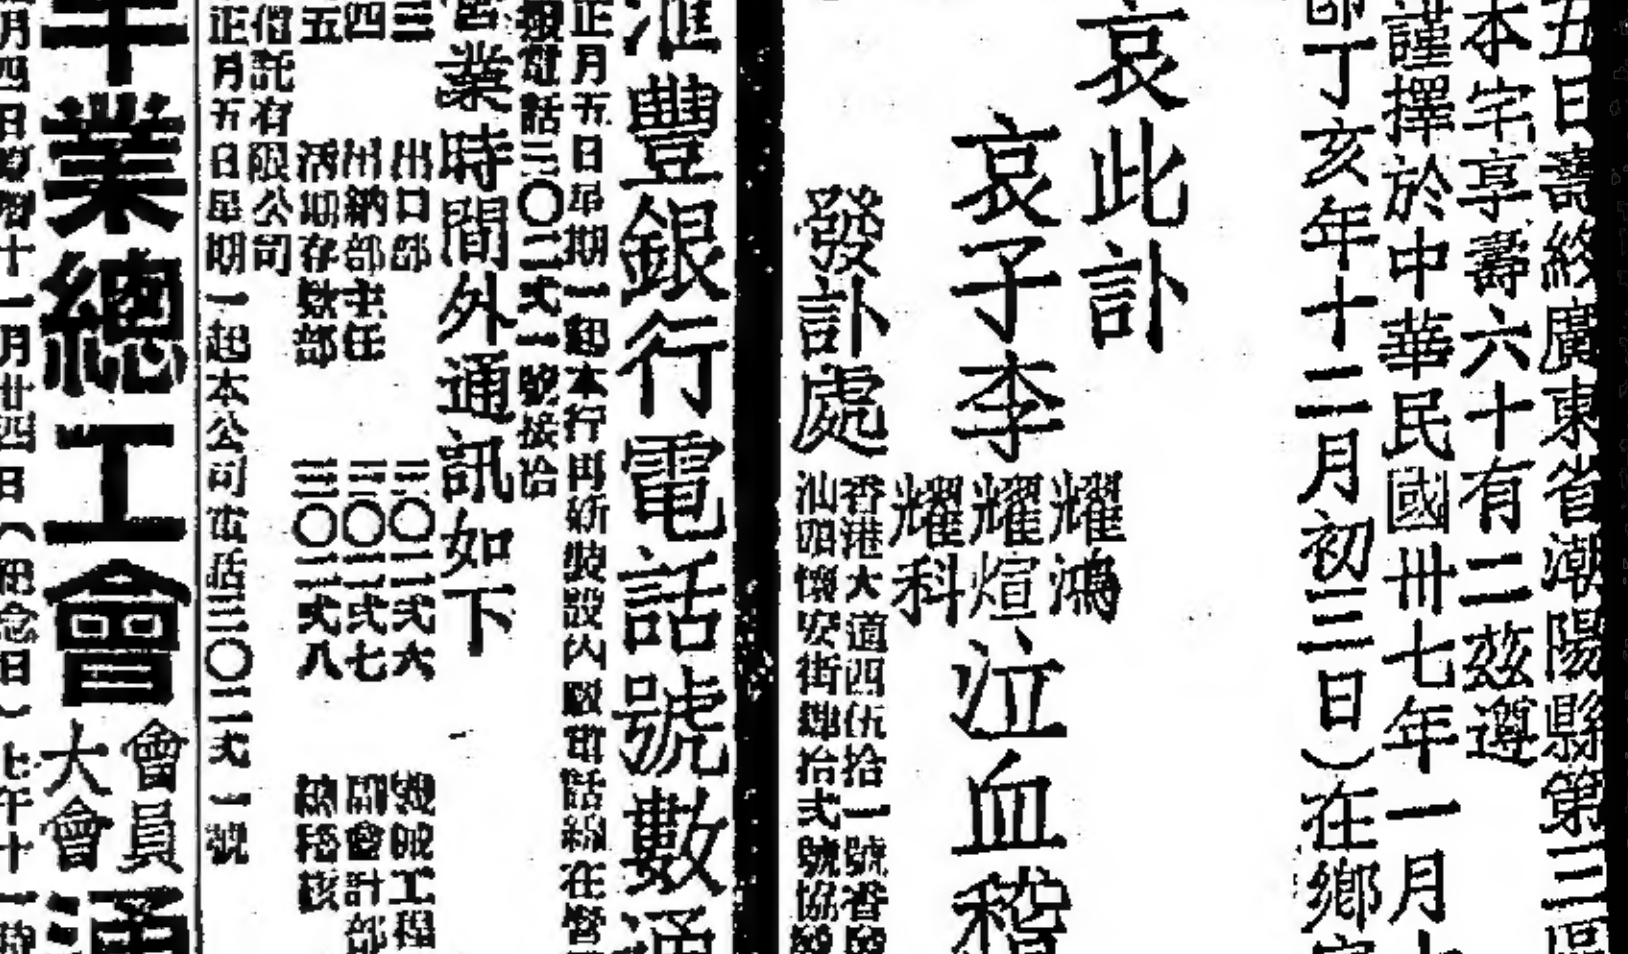 五日壽終廣東省潮陽縣第三區
本宅享壽六十有二茲遵
謹擇於中華民國卅七年一月
即丁亥年十二月初三日)在鄉
哀此訃
哀子李
耀鴻
耀煊
耀科
泣血稽
發訃處
香港大道西伍拾一號香
汕頭懷安街 拾弍號協
滙豐銀行電話號數通
正月五日星期一起本行再新裝設內 電話 在營
電話三〇二弍一號接洽
營業時間外通訊如下
出口部 三〇二弍六 工程
三
出納部主任 三〇二弍七 會計部
四
活期存欵部 三〇二弍八 稽核
五
信託有限公司
正月五日星期一起本公司電話三〇二弍一號
業總工會
會員
大會
通
月四日 十一月廿四日( 念日)